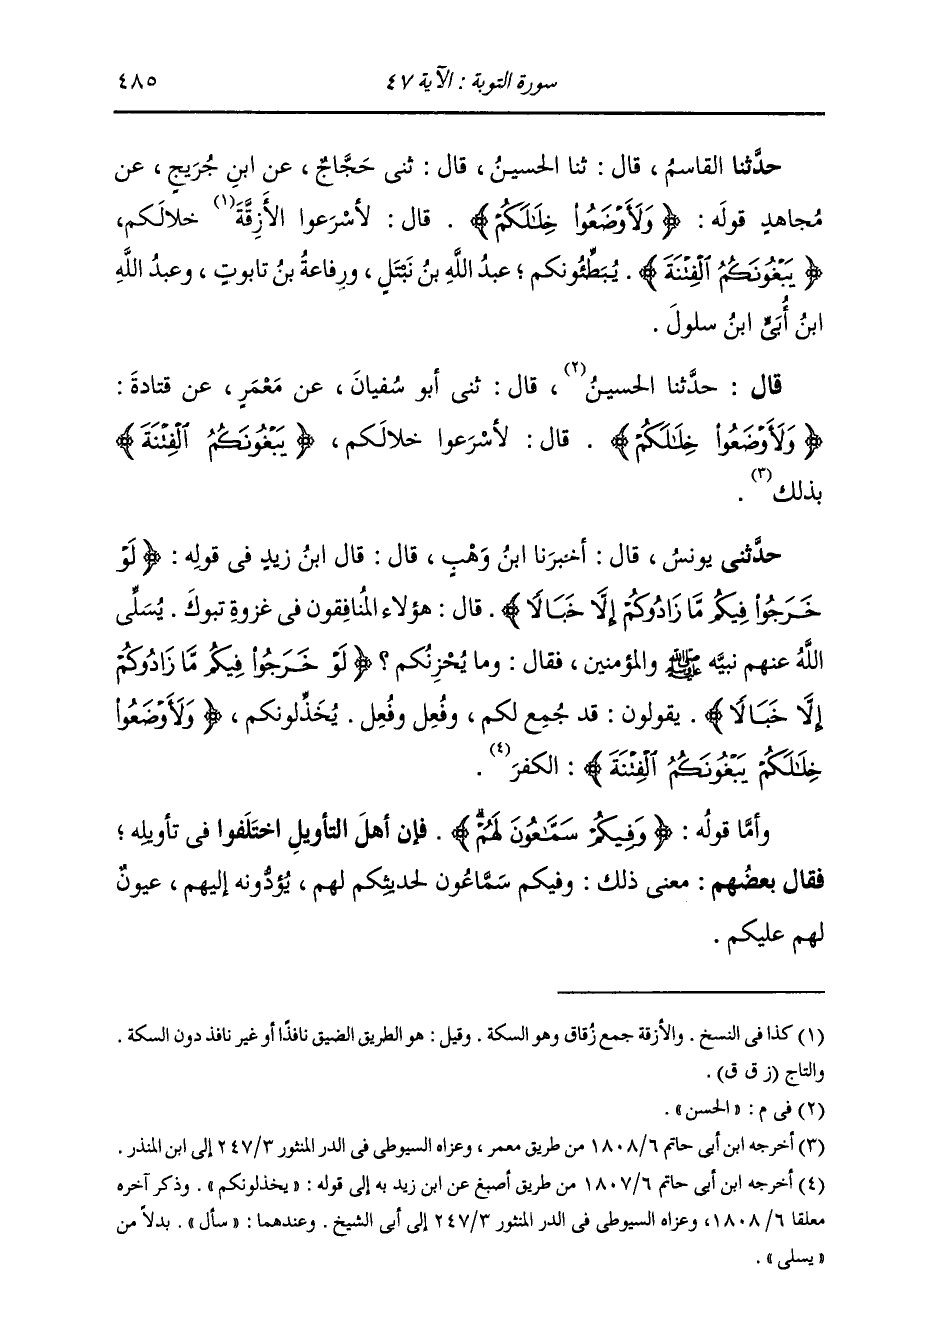 سورة التوبة : الآية ٤٧ ٤٨٥
حدَّثنا القاسمُ ، قال : ثنا الحسينُ ، قال : ثنى حَجَّاجٌ ، عن ابنِ جُرَيجٍ ، عن
مُجاهدٍ قولَه : ﴿ وَلَأَوْضَعُوا۟ خِلَـٰلَكُمْ ﴾ . قال : لأسْرَعوا الأَزِقَّةَ(١) خلالَكم،
﴿ يَبْغُونَكُمُ ٱلْفِتْنَةَ ﴾ . يُبَطِّئُونكم ؛ عبدُ اللَّهِ بنُ نَبْتَلٍ ، ورِفاعةُ بنُ تابوتٍ ، وعبدُ اللَّهِ
ابنُ أُبَىٍّ ابنُ سلولَ .
قال : حدَّثنا الحسينُ(٢) ، قال : ثنى أبو سُفيانَ ، عن مَعْمَرٍ ، عن قتادةَ :
﴿ وَلَأَوْضَعُوا۟ خِلَـٰلَكُمْ ﴾ . قال : لأسْرَعوا خلالَكم ، ﴿ يَبْغُونَكُمُ ٱلْفِتْنَةَ ﴾
بذلك(٣) .
حدَّثنى يونسُ ، قال : أخبرَنا ابنُ وَهْبٍ ، قال : قال ابنُ زيدٍ فى قولِه : ﴿ لَوْ
خَرَجُوا۟ فِيكُم مَّا زَادُوكُمْ إِلَّا خَبَالًا ﴾ . قال : هؤلاء المُنافِقون فى غزوةِ تبوكَ . يُسَلِّى
اللَّهُ عنهم نبيَّه ﷺ والمؤمنين ، فقال : وما يُحْزِنُكم ؟ ﴿ لَوْ خَرَجُوا۟ فِيكُم مَّا زَادُوكُمْ
إِلَّا خَبَالًا ﴾ . يقولون : قد جُمِع لكم ، وفُعِل وفُعِل . يُخَذِّلونكم ، ﴿ وَلَأَوْضَعُوا۟
خِلَـٰلَكُمْ يَبْغُونَكُمُ ٱلْفِتْنَةَ ﴾ : الكفرَ(٤) .
وأمَّا قولُه : ﴿ وَفِيكُمْ سَمَّـٰعُونَ لَهُمْ ﴾ . فإن أهلَ التأويلِ اختَلَفوا فى تأويلِه ؛
فقال بعضُهم : معنى ذلك : وفيكم سَمَّاعُون لحديثِكم لهم ، يُؤدُّونه إليهم ، عيونٌ
لهم عليكم .
(١) كذا فى النسخ . والأزقة جمع زُقاق وهو السكة . وقيل : هو الطريق الضيق نافذًا أو غير نافذ دون السكة .
والتاج (ز ق ق) .
(٢) فى م : « الحسن » .
(٣) أخرجه ابن أبى حاتم ١٨٠٨/٦ من طريق معمر ، وعزاه السيوطى فى الدر المنثور ٢٤٧/٣ إلى ابن المنذر .
(٤) أخرجه ابن أبى حاتم ١٨٠٧/٦ من طريق أصبغ عن ابن زيد به إلى قوله : « يخذلونكم » . وذكر آخره
معلقا ١٨٠٨/٦، وعزاه السيوطى فى الدر المنثور ٢٤٧/٣ إلى أبى الشيخ . وعندهما : « سأل » . بدلاً من
« يسلى » .